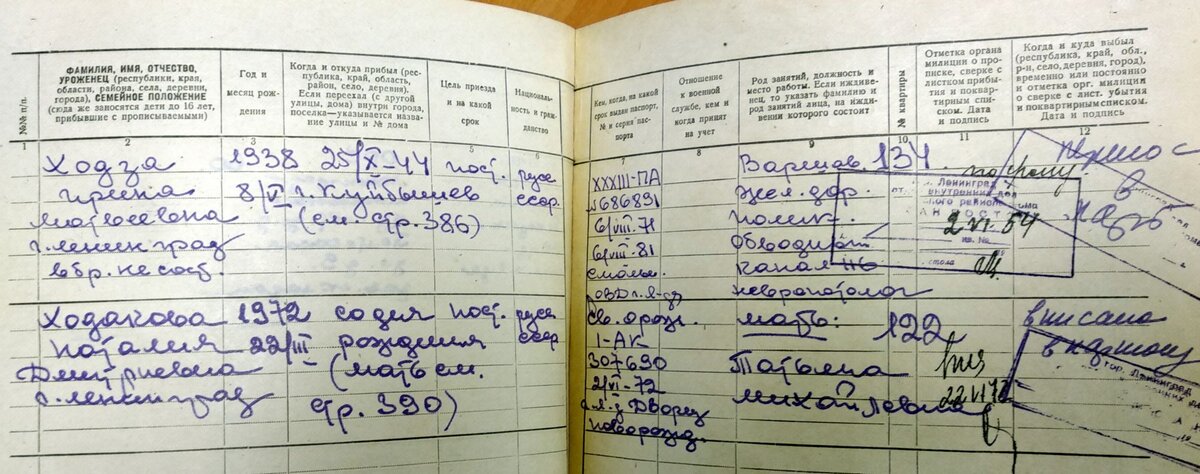 №№ п/п.
ФАМИЛИЯ, ИМЯ, ОТЧЕСТВО,
УРОЖЕНЕЦ (республики, края,
области, района, села, деревни,
города), СЕМЕЙНОЕ ПОЛОЖЕНИЕ
(сюда же заносятся дети до 16 лет,
прибывшие с прописываемыми)
Год и
месяц рож-
дения
Когда и откуда прибыл (рес-
публика, край, область,
район, село, деревня).
Если переехал (с другой
улицы, дома) внутри города,
поселка—указывается назва-
ние улицы и № дома
Цель приезда
и на какой
срок
Националь-
ность и граж-
данство
1
2
3
4
5
6
Ходза
Ирина
Матвеевна
г. Ленинград
в бр. не сост.
1938
8/V
25/X-44
г. Куйбышев
(см. стр. 386)
пост.
русс
ссср.
Ходакова
Наталия
Дмитриевна
г. Ленинград
1972
22/III
со дня
рождения
(мать см.
стр. 390)
пост.
русс
ссср
Кем, когда, на какой
срок выдан паспорт,
№ и серия пас-
порта
Отношение
к военной
службе, кем и
когда принят
на учет
Род занятий, должность и
место работы. Если иждиве-
нец, то указать фамилию и
род занятий лица, на ижди-
вении которого состоит
№ квартиры
Отметка органа
милиции о про-
писке, сверке с
листком прибы-
тия и поквар-
тирным спи-
ском. Дата
и подпись
Когда и куда выбыл
(республика, край, обл.,
р-н, село, деревня, город),
временно или постоянно
и отметка орг. милиции
о сверке с лист. убытия
и поквартирным списком.
Дата и подпись
7
8
9
10
11
12
XXXIII-ПА
№686831
6/VIII-71
6/VIII-81
Варшав.
жел. дор.
поликл.
Обводный
канал
невропатолог
134
Ленинград
внутренних дел
кв. №
стола
2 VI 54
св. о рожд.
1-АК
307690
2/VI-72
Дворец
новорожд.
мать:
Татьяна
Михайловна
122
22 VI 72
вписана
гор. Ленинград